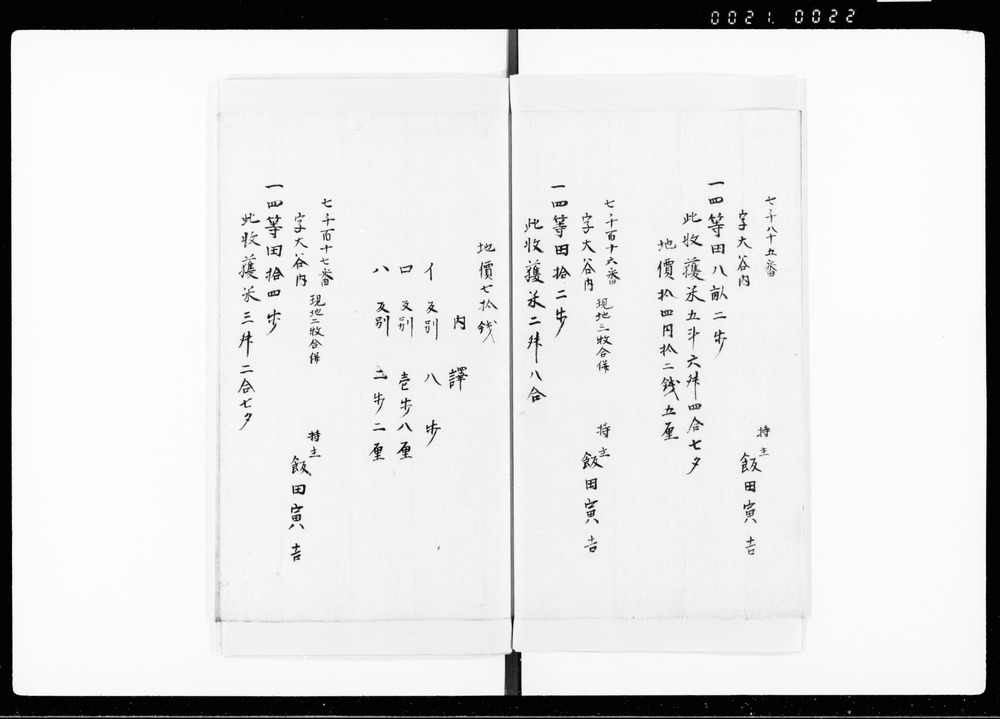 0021. 0022
七千八十五番
字大谷内
持主 飯田寅吉
一四等田八畝二歩
此收獲米五斗六舛四合七夕
地價拾四円拾二銭五厘
七千百十六番
字大谷内 現地三牧合併
持主 飯田寅吉
一四等田拾二歩
此收獲米二舛八合
地價七拾銭
内譯
イ 反別 八歩
ロ 反別 壱歩八厘
ハ 反別 二歩二厘
七千百十七番
字大谷内 現地二牧合併
持主 飯田寅吉
一四等田拾四歩
此收獲米三舛二合七夕